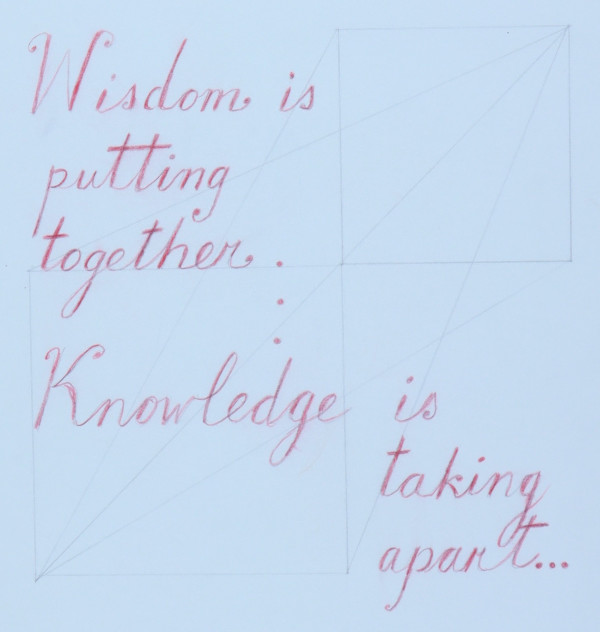 Wisdom is
putting
together.
:
Knowledge is
taking
apart...